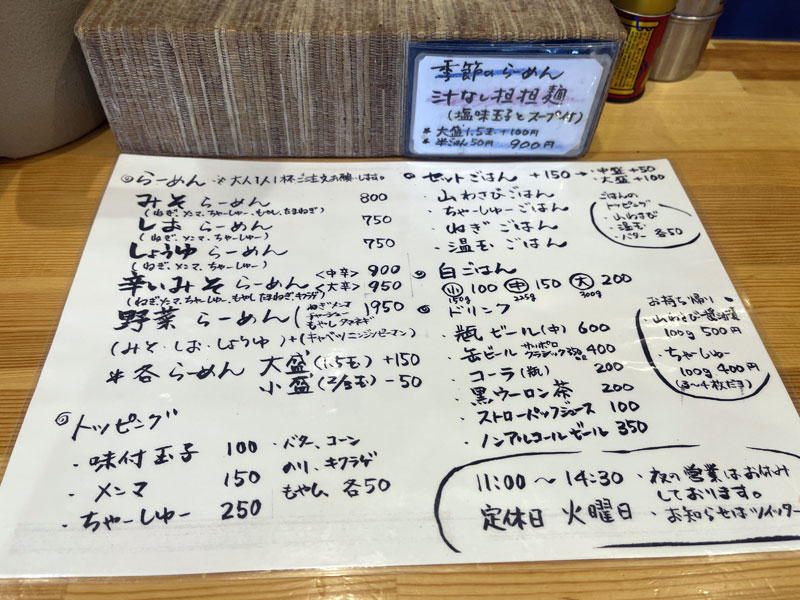 季節のらーめん
汁なし担担麺
(塩味玉子とスープ付)
* 大盛1.5玉+100円
* 半ごはん50円 900円
◎らーめん ※大人1人1杯ご注文お願いします。
みそらーめん 800
(ねぎ、メンマ、ちゃーしゅー、もやし、たまねぎ)
しおらーめん 750
(ねぎ、メンマ、ちゃーしゅー)
しょうゆらーめん 750
(ねぎ、メンマ、ちゃーしゅー)
辛いみそらーめん <中辛> 900
<大辛> 950
(ねぎ、メンマ、ちゃーしゅー、もやし、たまねぎ、キクラゲ)
野菜らーめん 950
(ねぎ、メンマ
チャーシュー
もやし、タマネギ)
(みそ・しお・しょうゆ)+(キャベツニンジンピーマン)
* 各らーめん 大盛(1.5玉) +150
小盛(2/3玉) -50
◎トッピング
・味付玉子 100
・メンマ 150
・ちゃーしゅー 250
・バタ、コーン
のり、キクラゲ
もやし 各50
◎セットごはん +150→・中盛+50
・大盛+100
・山わさびごはん
・ちゃーしゅーごはん
・ねぎごはん
・温玉ごはん
ごはんの
トッピング
・山わさび
・温玉
・バター 各50
◎白ごはん
小 100 中 150 大 200
150g 225g 300g
◎ドリンク
・瓶ビール(中) 600
・缶ビール サッポロクラシック350 400
・コーラ(瓶) 200
・黒ウーロン茶 200
・ストロードップジュース 100
・ノンアルコールビール 350
お持ち帰り
・山わさび醤油漬
100g 500円
・ちゃーしゅー
100g 400円
(3〜4枚だョ)
11:00〜14:30
定休日 火曜日
・夜の営業はお休み
しております。
・お知らせはツイッター